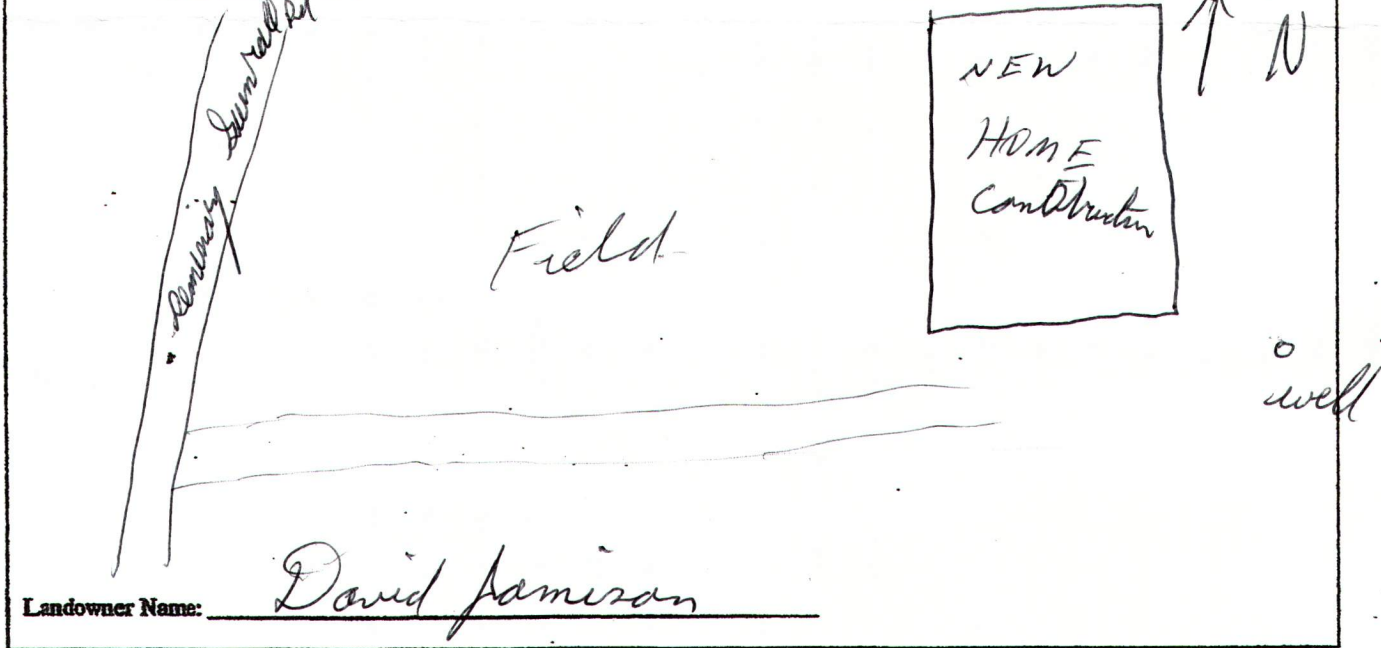 Sumrall Rd
N
NEW
HOME
Construction
Field
well
Landowner Name: David Jamison